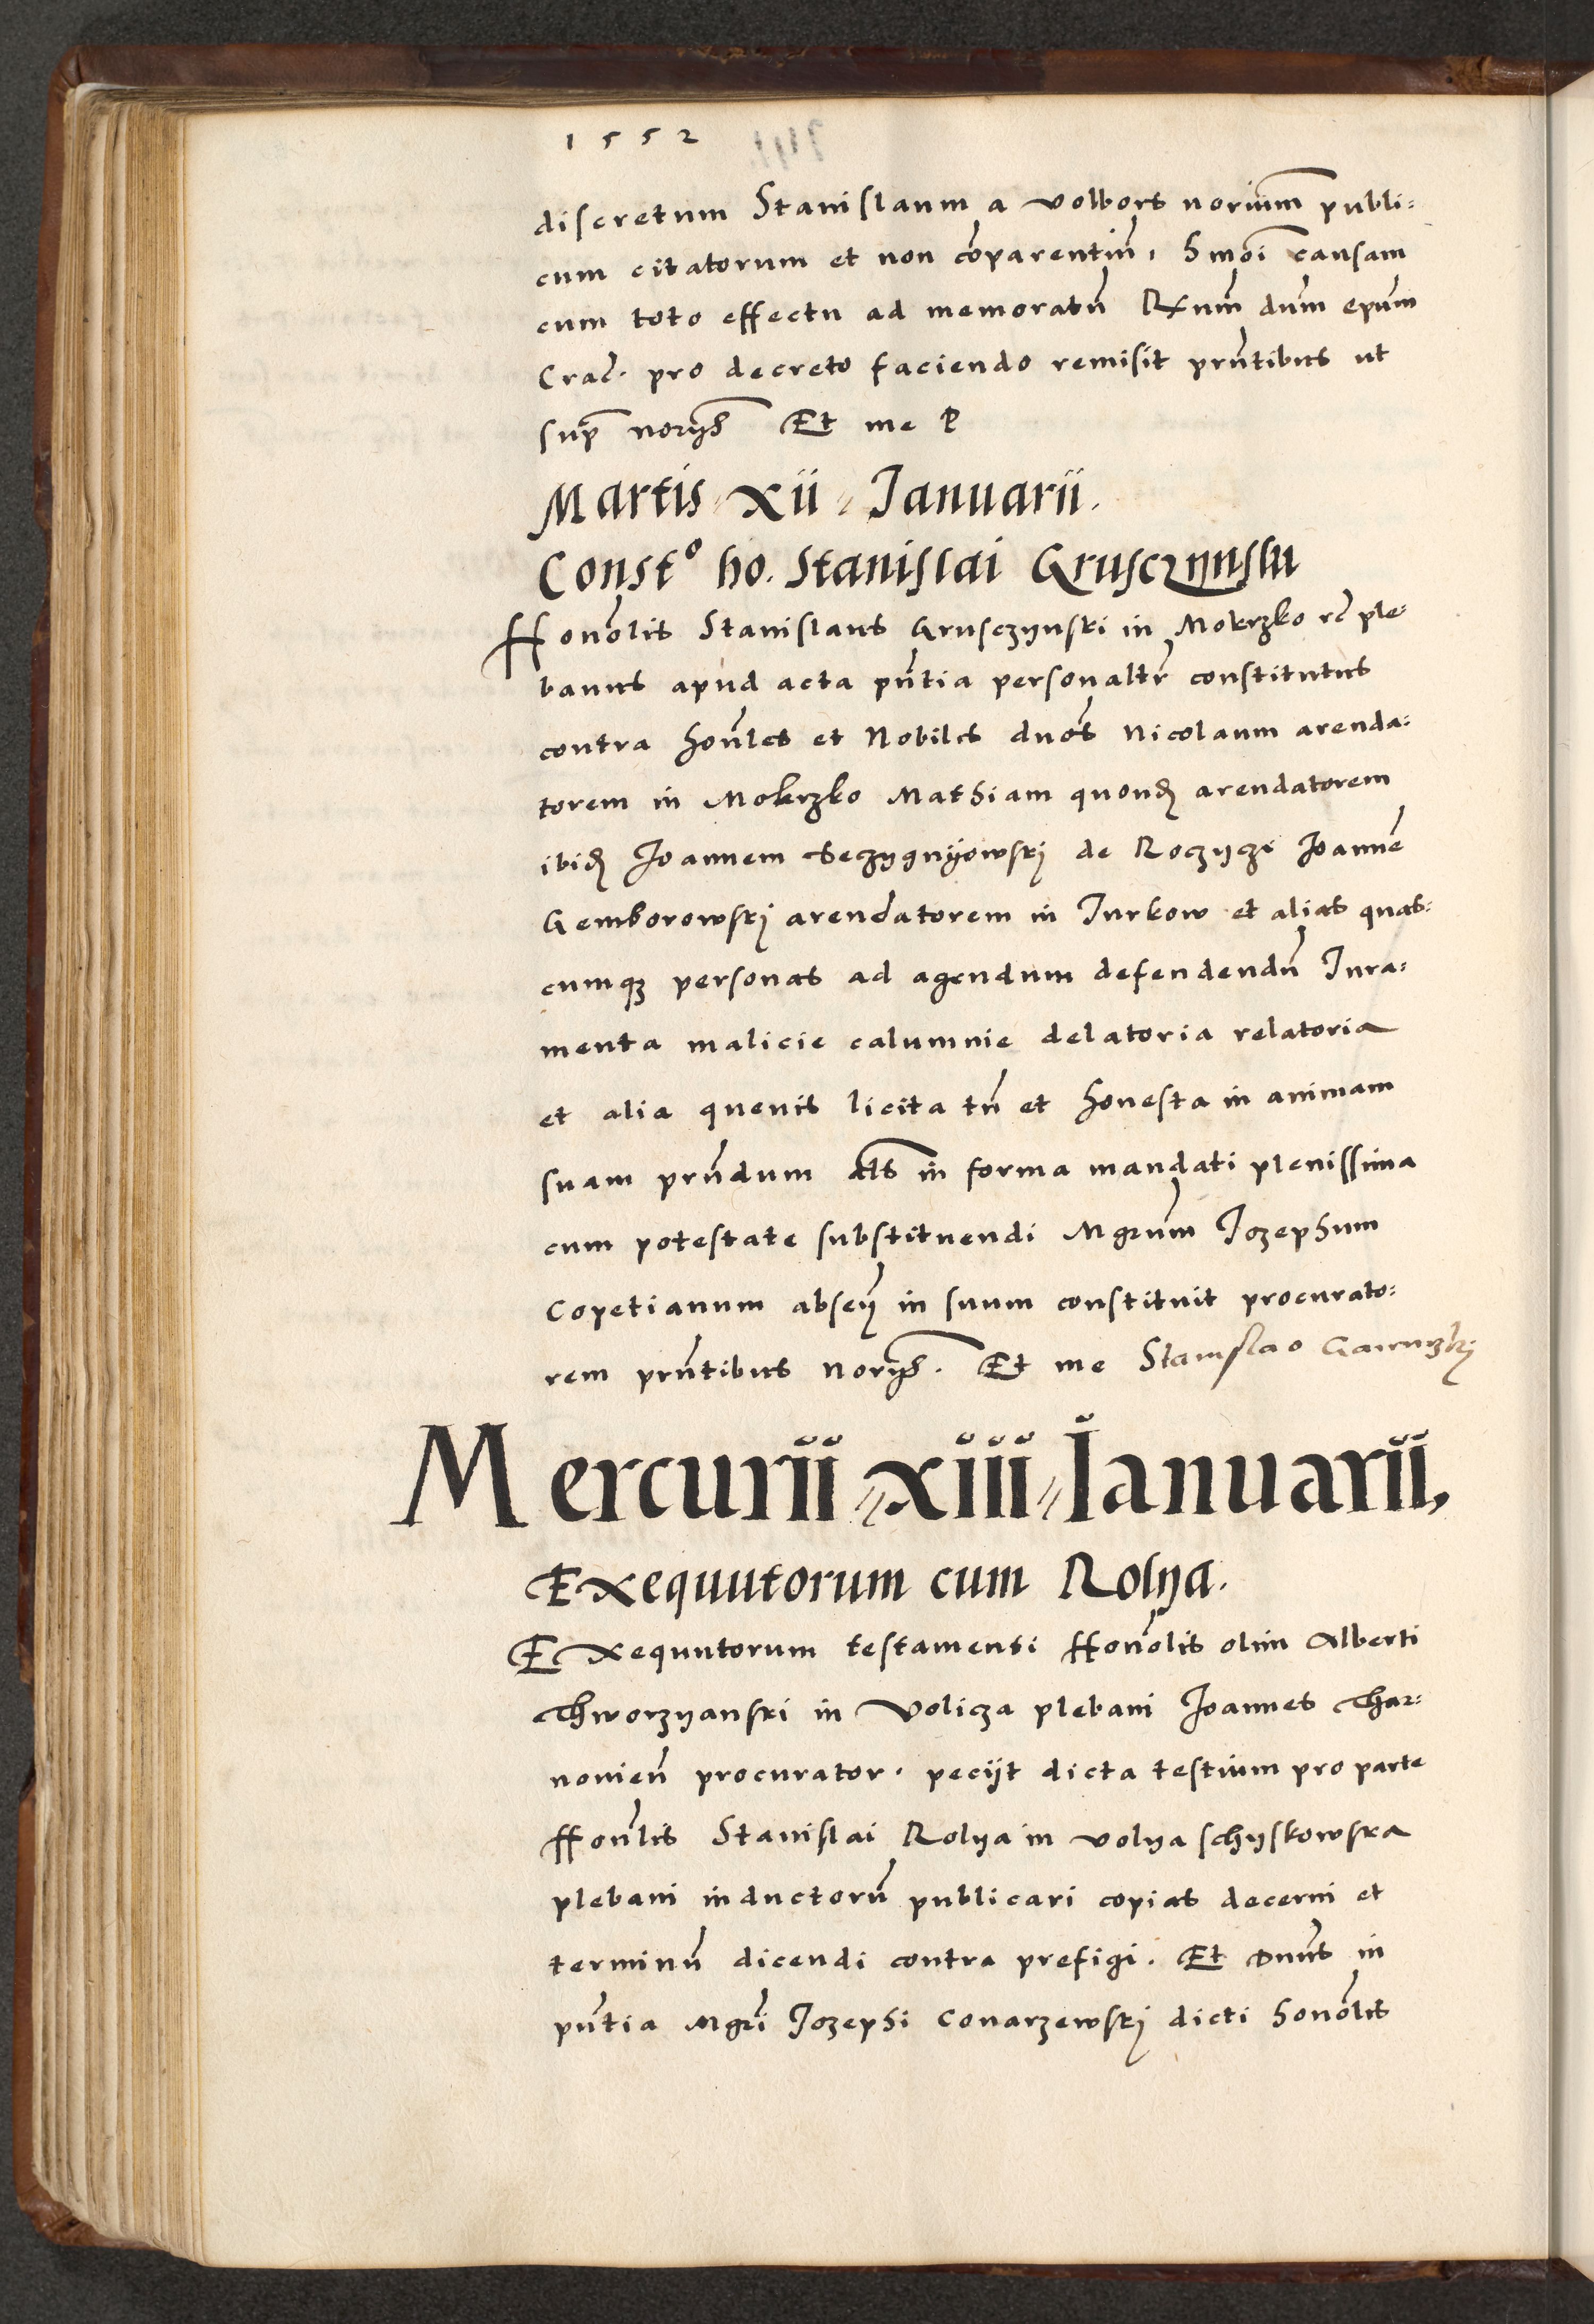 1552
discretum Stanislaum a Volbors norium̄ publi:
cum citatorum et non cōparentiū, hmōi causam
cum toto effectu ad memoratū Rxum̄ dum̄ epum̄
Crac̄. pro decreto faciendo remisit prn̄tibus ut
sup̄ norijs Et me P
Martis xii Januarii.
Const° ho. Stanislai Grusczynskii
Honōlis Stanislaus Grusczynski in Mokrzko rc̄ ple:
banus apud acta pn̄tia personaltr̄ constitutus
contra hon̄les et Nobiles duos̄ Nicolaum arenda:
torem in Mokrzko Mathiam quond̄ arendatorem
ibid̄ Joannem Seczygnijowskj de Roczycze Joannē
Gemborowskj arendatorem in Turkow et alias quas:
cumqz personas ad agendum defendendū Jura:
menta malicie calumnie delatoria relatoria
et alia quevis licita tn̄ et honesta in animam
suam prn̄dum als̄ in forma mandati plenissima
cum potestate substituendi Mgrum̄ Jozephum
Copetianum absen̄ in suum constituit procurato:
rem prn̄tibus norijs. Et me Stanislao
Mercurii xiii Januarii,
Exequutorum cum Rolya.
Exequutorum testamenti Honōlis olim Alberti
Thworzyanski in Volicza plebani Joannes Thar:
novien̄ procurator. pecijt dicta testium pro parte
Hon̄lis Stanislai Rolya in volya schyskowska
plebani inductorū publicari copias decerni et
terminū dicendi contra prefigi. Et Dnus̄ in
pn̄tia Mgrī Jozephi Conarzewskj dicti honōlis